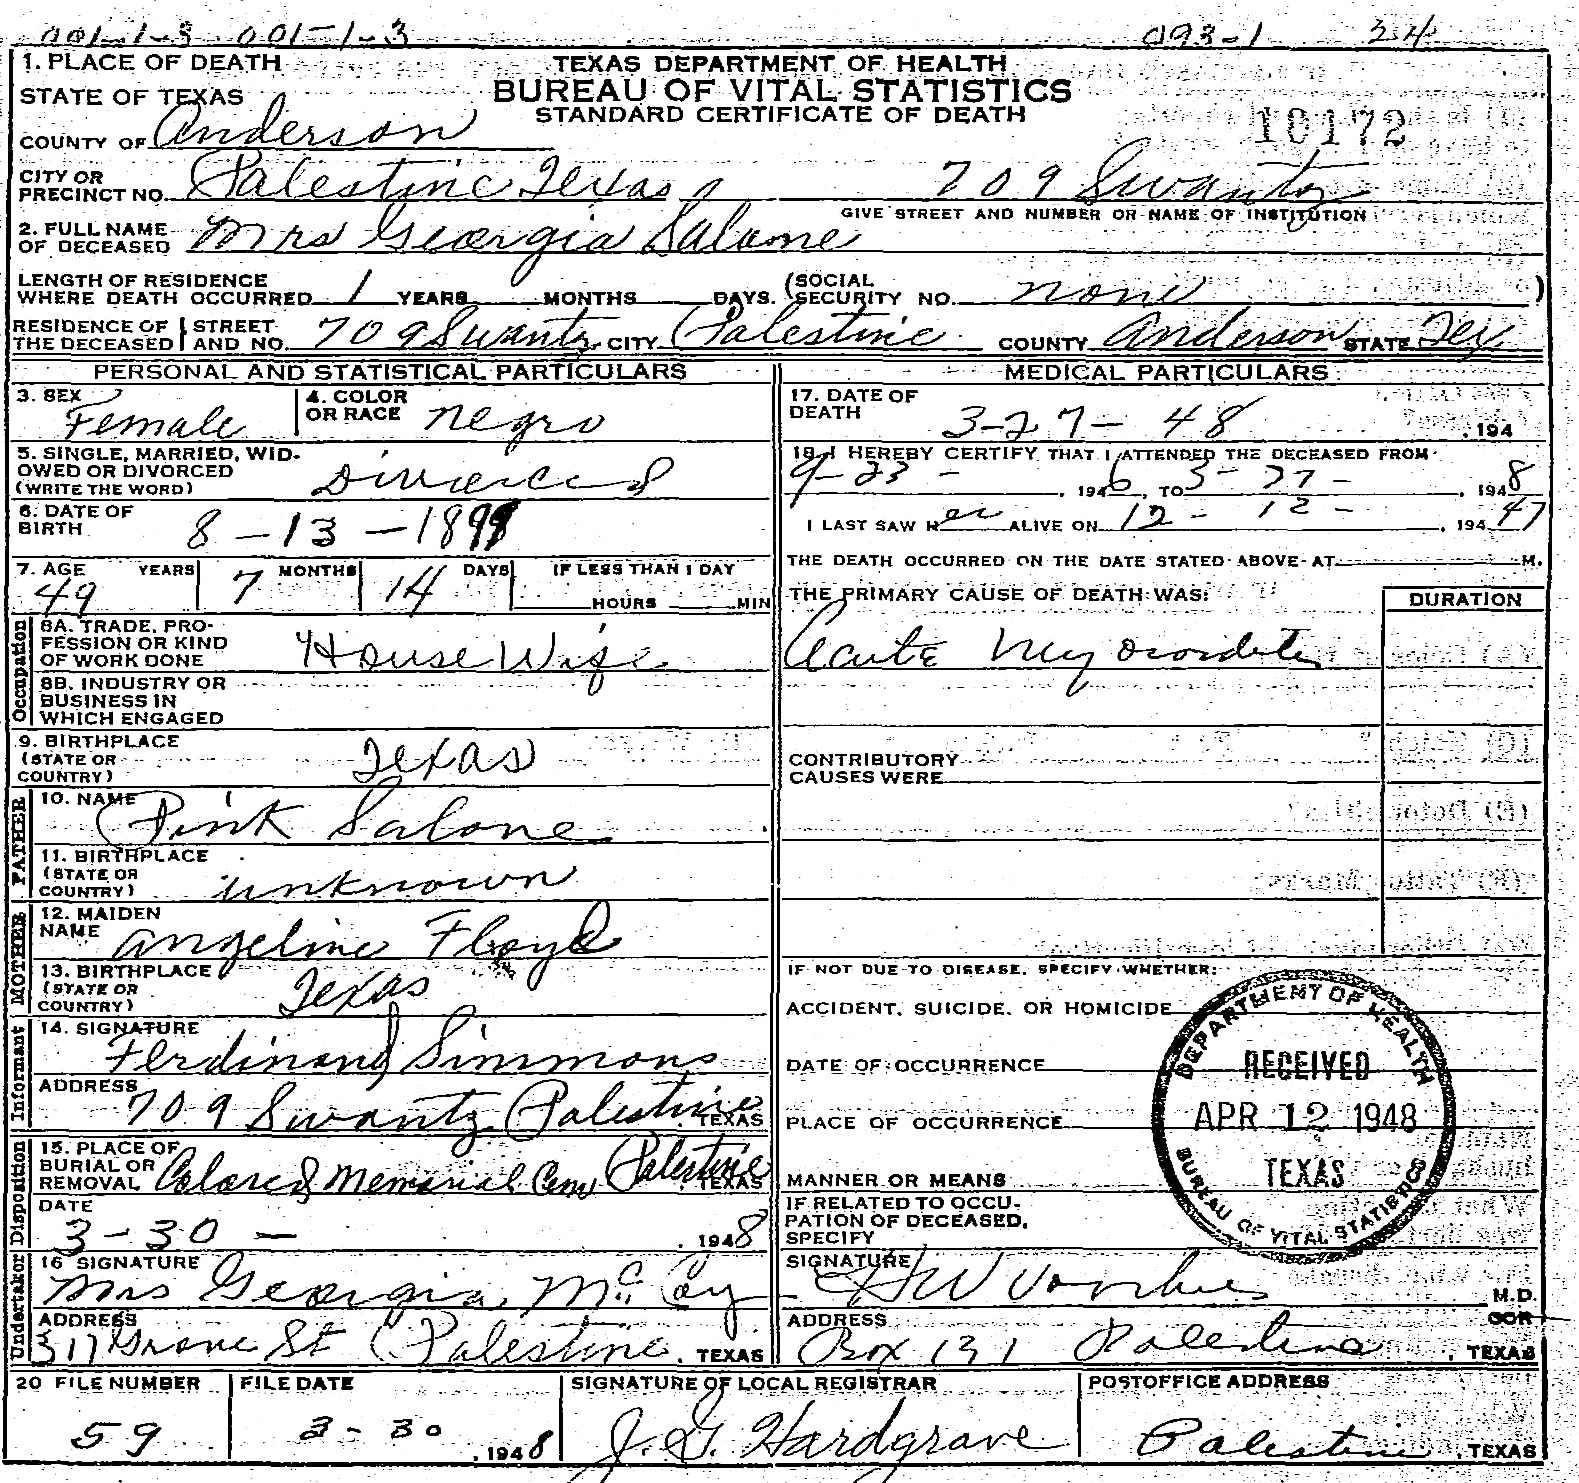 001-1-3 001-1-3 093-1 34
1. PLACE OF DEATH
STATE OF TEXAS
TEXAS DEPARTMENT OF HEALTH
BUREAU OF VITAL STATISTICS
STANDARD CERTIFICATE OF DEATH
COUNTY OF Anderson
CITY OR PRECINCT NO. Palestine Texas 709 Swantz
GIVE STREET AND NUMBER OR NAME OF INSTITUTION
2. FULL NAME OF DECEASED Mrs Georgia Salone
LENGTH OF RESIDENCE WHERE DEATH OCCURRED 1 YEARS MONTHS DAYS. (SOCIAL SECURITY NO. none )
RESIDENCE OF THE DECEASED STREET AND NO. 709 Swantz CITY Palestine COUNTY Anderson STATE Tex
PERSONAL AND STATISTICAL PARTICULARS
3. SEX Female 4. COLOR OR RACE Negro
5. SINGLE, MARRIED, WIDOWED OR DIVORCED (WRITE THE WORD) Divorced
6. DATE OF BIRTH 8-13-1898
7. AGE YEARS MONTHS DAYS IF LESS THAN 1 DAY
49 7 14 HOURS MIN
Occupation
8A. TRADE, PROFESSION OR KIND OF WORK DONE House Wife
8B. INDUSTRY OR BUSINESS IN WHICH ENGAGED
9. BIRTHPLACE (STATE OR COUNTRY) Texas
FATHER
10. NAME Pink Salone
11. BIRTHPLACE (STATE OR COUNTRY) unknown
MOTHER
12. MAIDEN NAME Angeline Floyd
13. BIRTHPLACE (STATE OR COUNTRY) Texas
Informant
14. SIGNATURE Ferdinand Simmons
ADDRESS 709 Swantz Palestine, TEXAS
Disposition
15. PLACE OF BURIAL OR REMOVAL Colored Memorial Cem Palestine, TEXAS
DATE 3-30- , 1948
Undertaker
16 SIGNATURE Mrs Georgia McCoy
ADDRESS 311 Grove St Palestine, TEXAS
MEDICAL PARTICULARS
17. DATE OF DEATH 3-27-48 , 194
18. I HEREBY CERTIFY THAT I ATTENDED THE DECEASED FROM
9-23- , 1946, TO 3-27- , 1948
I LAST SAW HER ALIVE ON 12-12- , 1947
THE DEATH OCCURRED ON THE DATE STATED ABOVE AT M.
THE PRIMARY CAUSE OF DEATH WAS: DURATION
Acute
CONTRIBUTORY CAUSES WERE
IF NOT DUE TO DISEASE, SPECIFY WHETHER:
ACCIDENT, SUICIDE, OR HOMICIDE
DATE OF OCCURRENCE
PLACE OF OCCURRENCE
MANNER OR MEANS
IF RELATED TO OCCUPATION OF DECEASED, SPECIFY
DEPARTMENT OF HEALTH
RECEIVED
APR 12 1948
TEXAS
BUREAU OF VITAL STATISTICS
SIGNATURE H W Voorhies M.D.
ADDRESS Box 131 Palestine, TEXAS
20 FILE NUMBER FILE DATE SIGNATURE OF LOCAL REGISTRAR POSTOFFICE ADDRESS
59 3-30 , 1948 J. G. Hardgrave Palestine, TEXAS